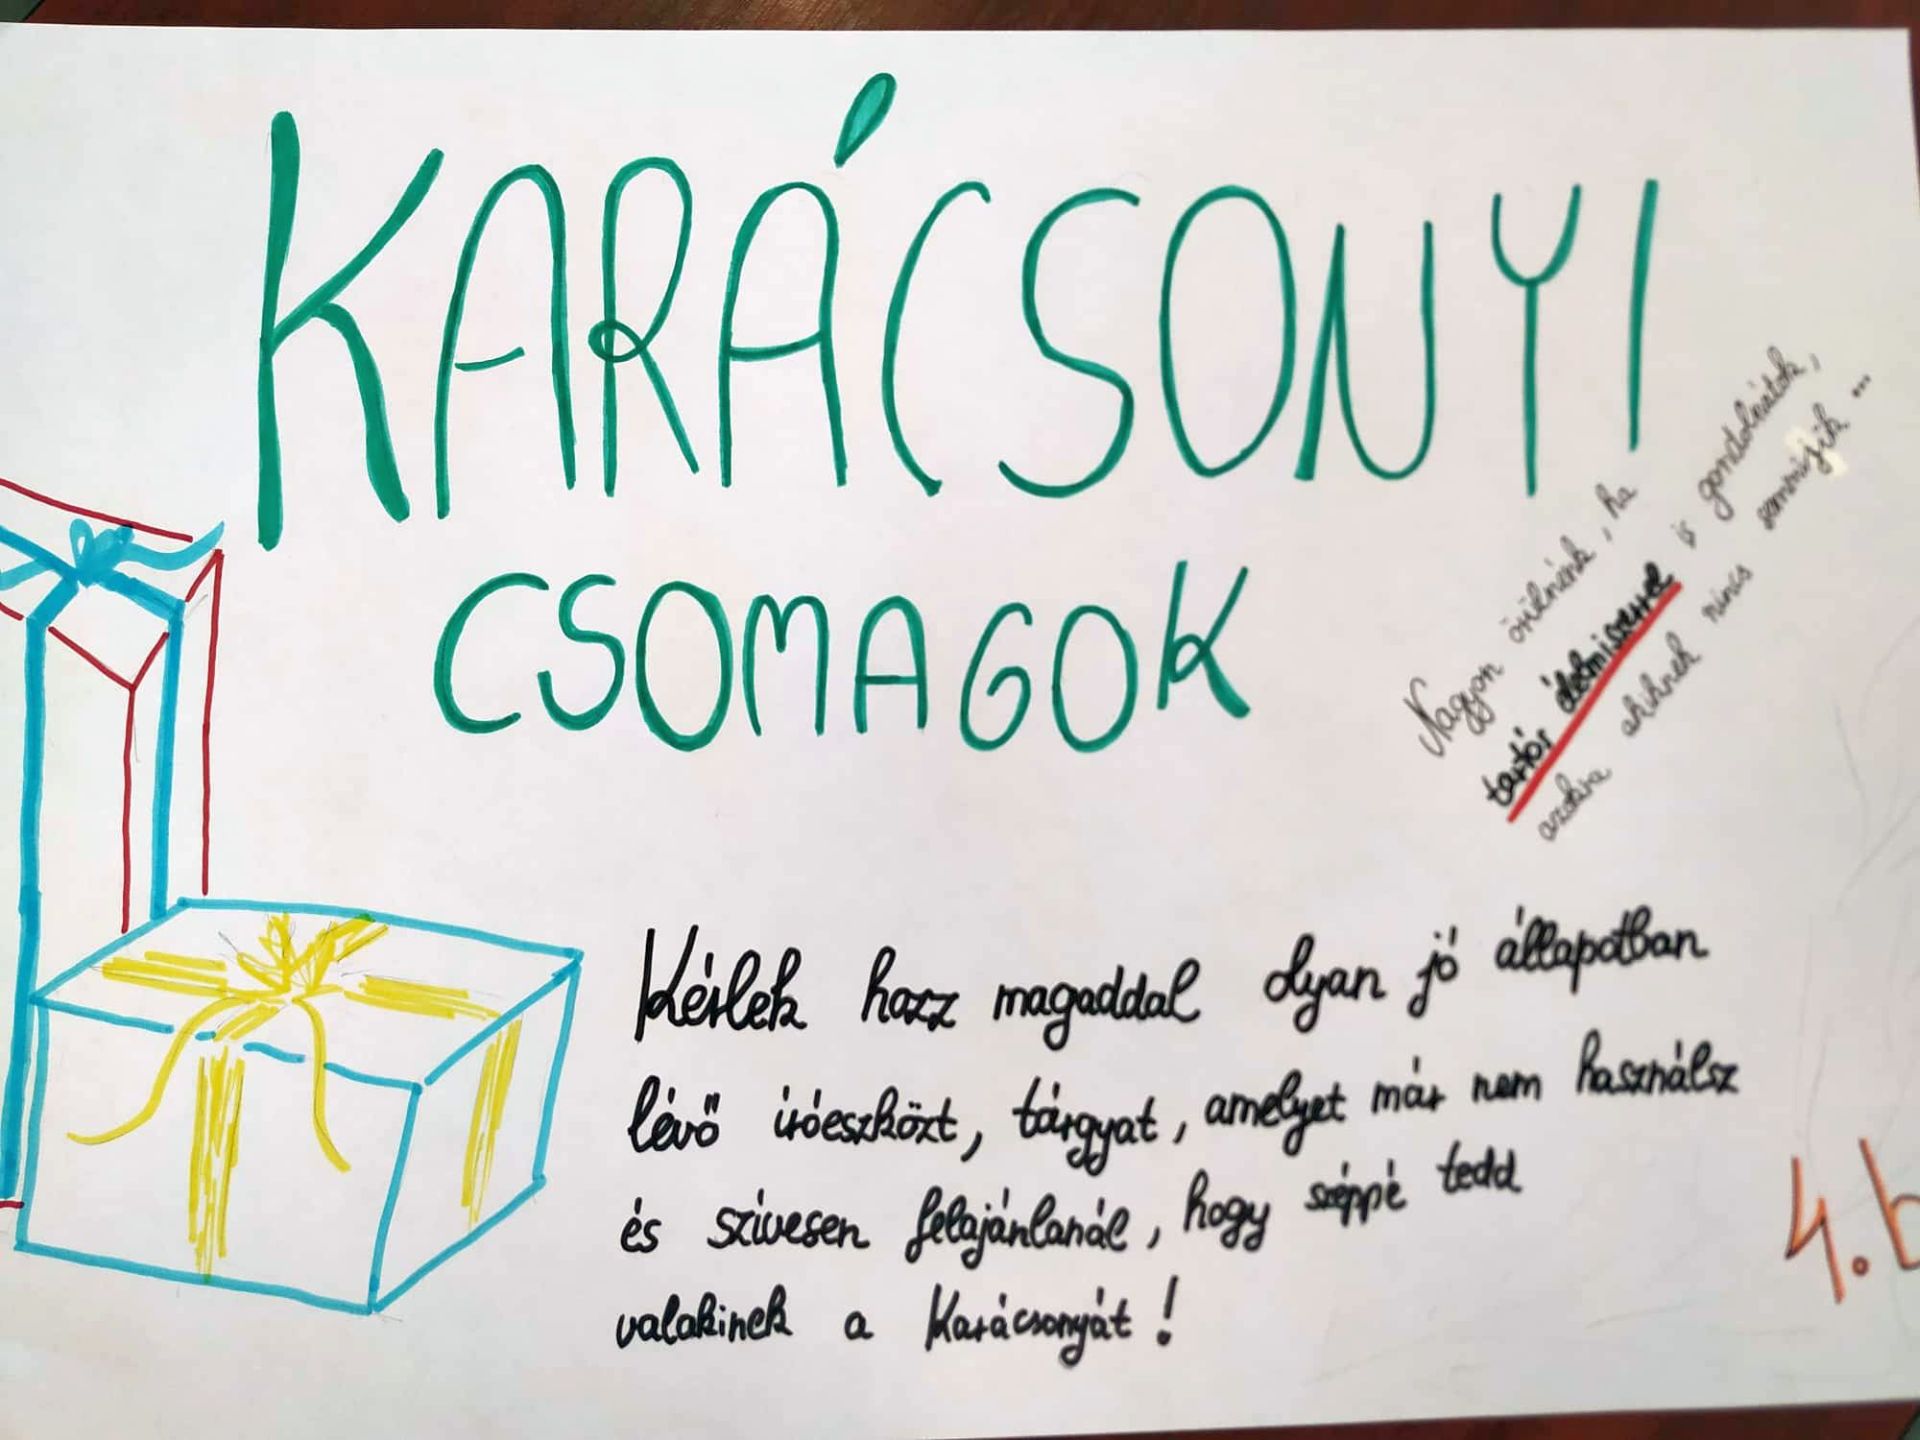 KARÁCSONYI
CSOMAGOK
Nagyon örülnénk, ha
tartós élelmiszerrel is gondolnátok,
azokra akiknek nincs semmijük ...
Kérlek hozz magaddal olyan jó állapotban
lévő íróeszközt, tárgyat, amelyet már nem használsz
és szívesen felajánlanál, hogy széppé tedd
valakinek a Karácsonyát!
4.b